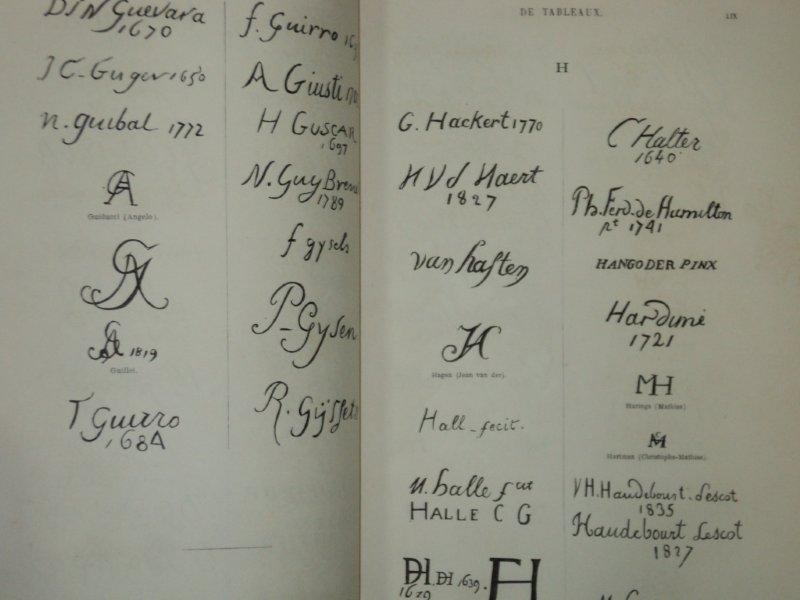 DIN Guevara
1670
J C-Guger 1650
n. guibal 1772
Guiducci (Angelo).
1819
Guillet.
T Guerro
1684
f. Guirro
A Giusti
H GUSCAR
1697
N. Guy Bren
1789
f gysels
P-Gysen
R. Gijs
DE TABLEAUX.
LIX
H
G. Hackert 1770
H V d Haert
1827
van haften
H
Hagen (Jean van der).
Hall_fecit.
n. halle f
HALLE C G
DH. DH 1639.
1629
H
C Halter
1640
Ph. Ferd. de Hamilton
pt 1741
HANGODER PINX
Hardimé
1721
MH
Harings (Mathias)
Hartman (Christophe-Mathias).
VH. Haudebourt. Lescot
1835
Haudebourt Lescot
1827